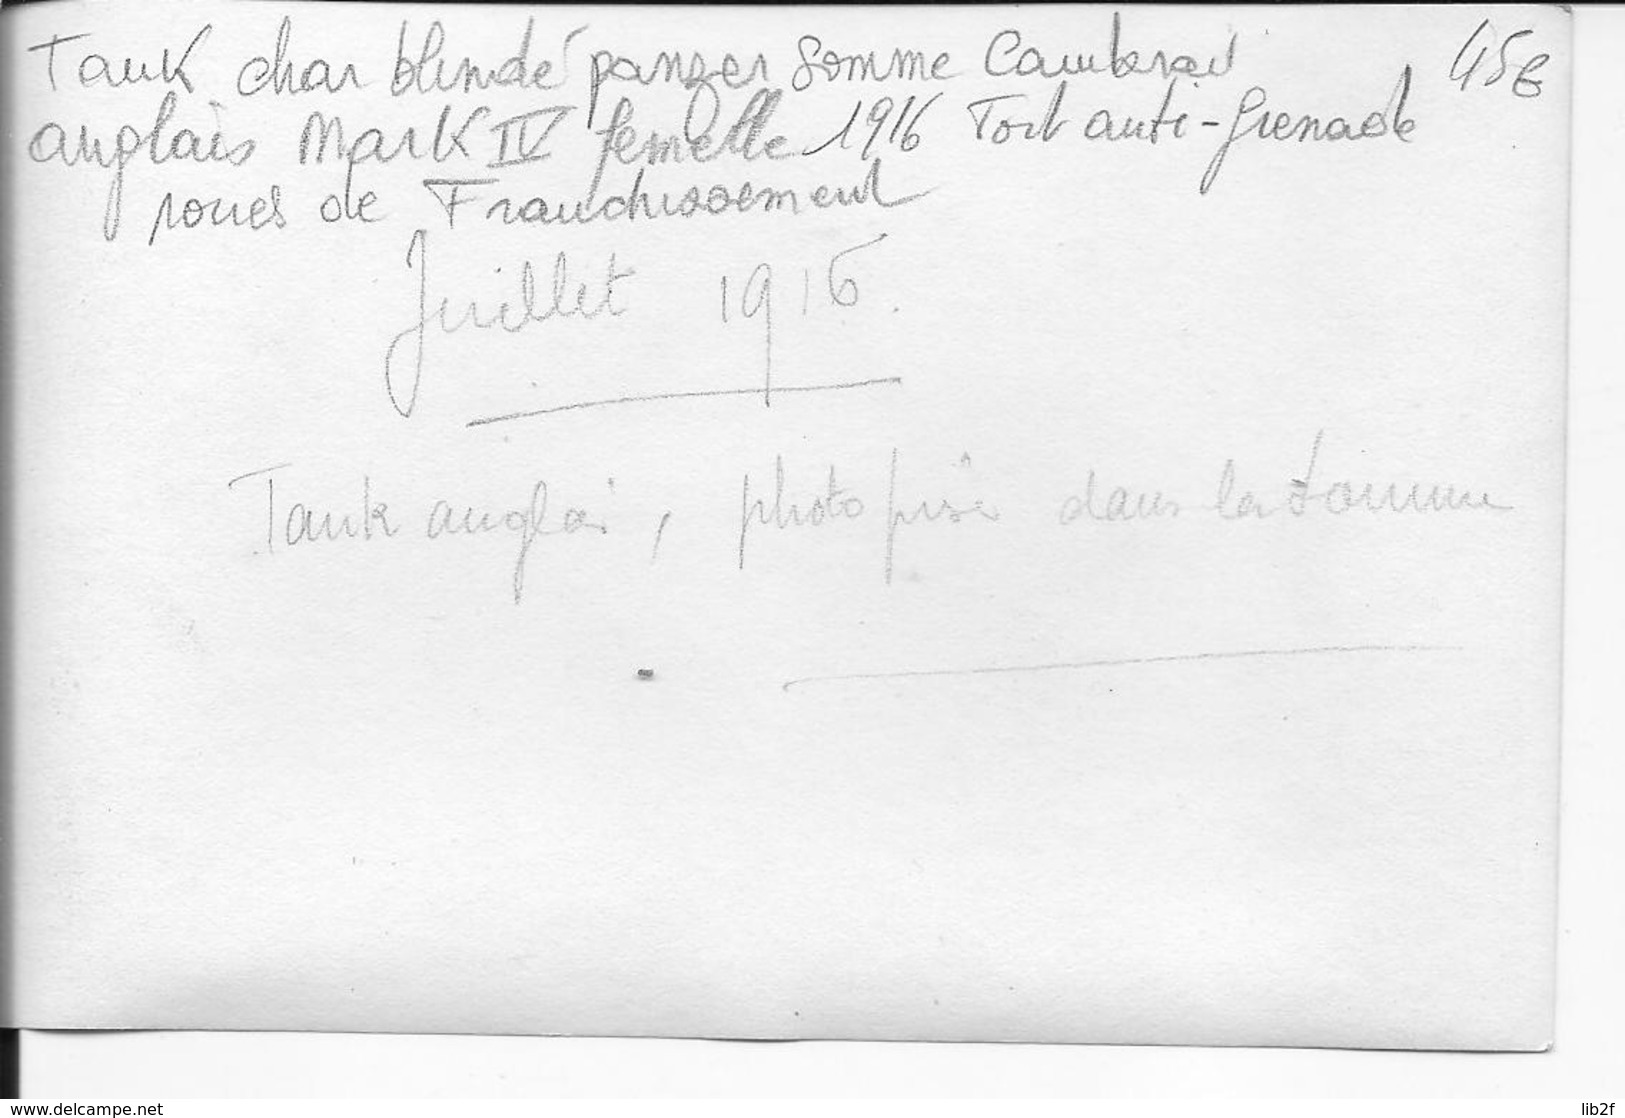 Tank char blindé panzer Somme Cambrai 45€
anglais Mark IV femelle 1916 Toit anti-grenade
roues de Franchissement
Juillet 1916.
Tank anglai, photo prise dans la Somme
www.delcampe.net lib2f